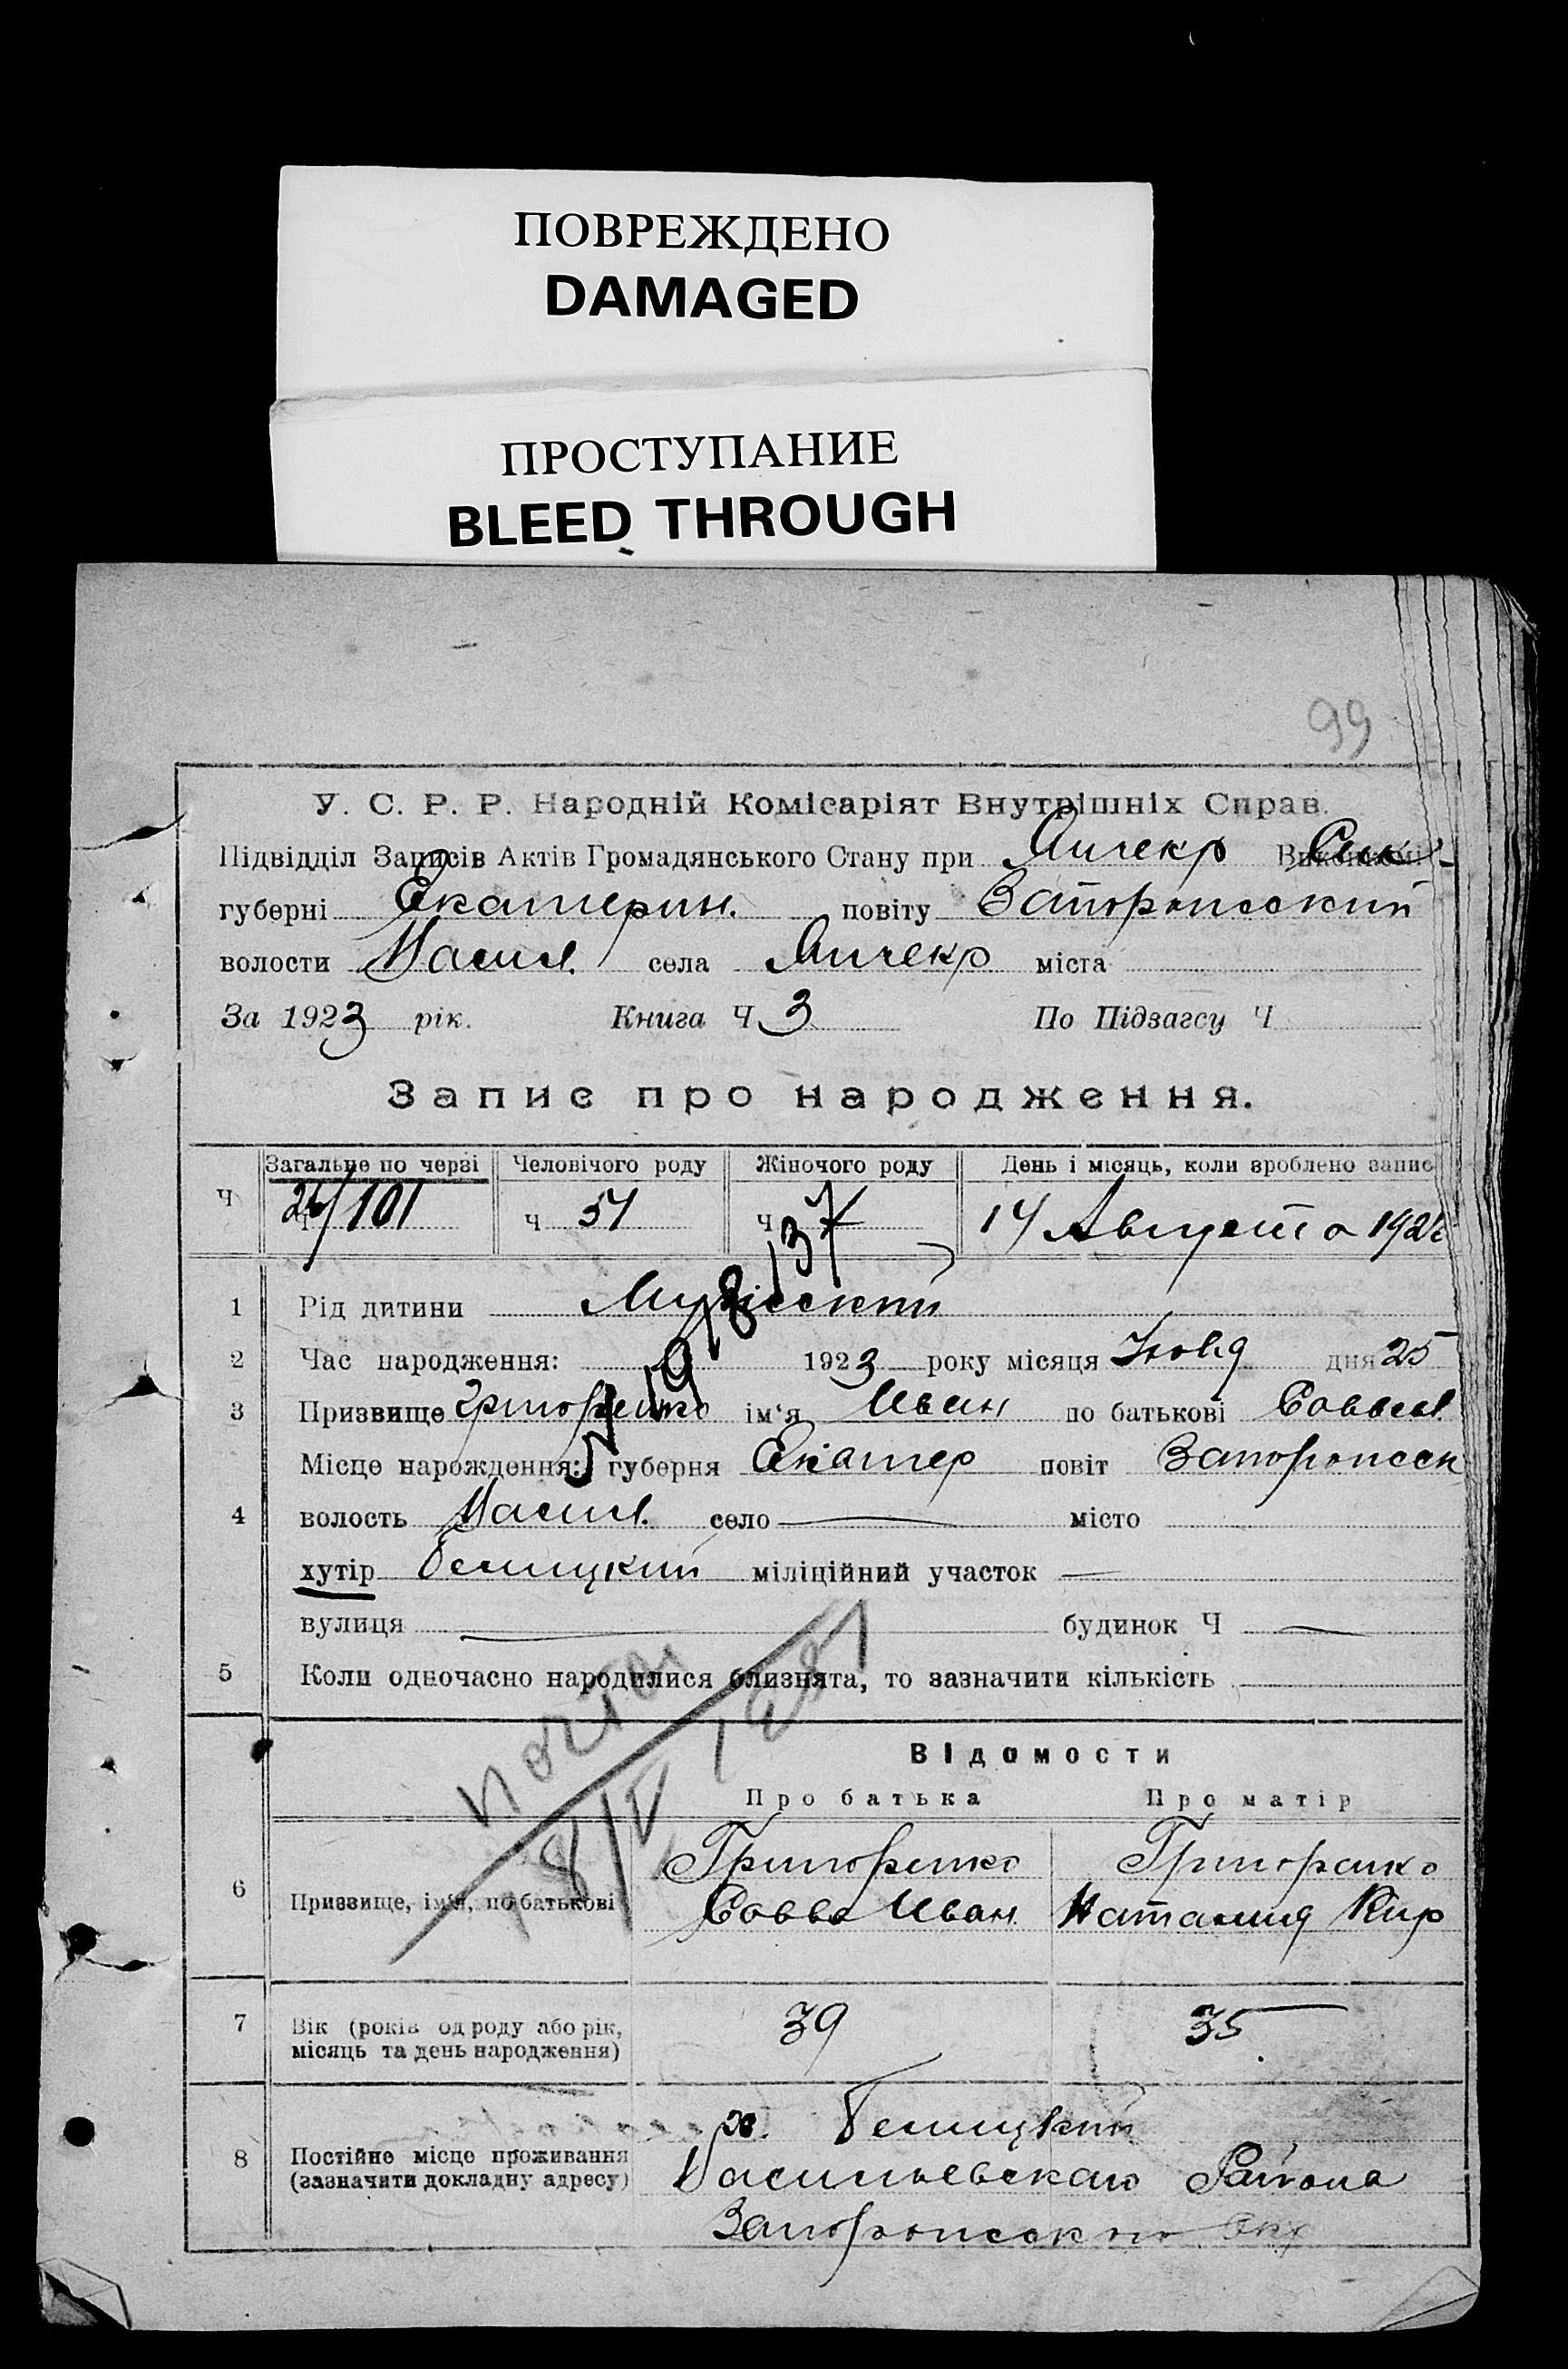 ПОВРЕЖДЕНО
DAMAGED
ПРОСТУПАНИЕ
BLEED THROUGH
99
У. С. Р. Р. Народній Комісаріят Внутрішніх Справ.
Підвідділ Записів Актів Громадянського Стану при Янчекр
губерні Екатерин. повіту Запорожский
волости Васил. села Янчекр міста
За 1923 рік. Книга Ч 3 По Підзагсу Ч
Запис про народження.
Загальне по черзі Человічого роду Жіночого роду День і місяць, коли зроблено запис
Ч /101 ч 51 ч 14 Августа 192
1 Рід дитини Мужеский
2 Час народження: 1923 року місяця Июля дня 25
3 Призвище Григоренко ім'я Иван по батькові Саввел.
Місце нарождення: губерня Екатер повіт Запорожск
4 волость Васил. село місто
хутір Белицкий міліційний участок
вулиця будинок Ч
5 Коли одночасно народилися близнята, то зазначити кількість
Відомости
Про батька Про матір
Григоренко Григоренко
6 Призвище, ім'я, по батькові Савва Иван. Наталия Кир
7 Вік (років од роду або рік, 39 35
місяць та день народження)
х. Белицкий
8 Постійне місце проживання Васильевскаго Района
(зазначити докладну адресу)
Запорожского Окр